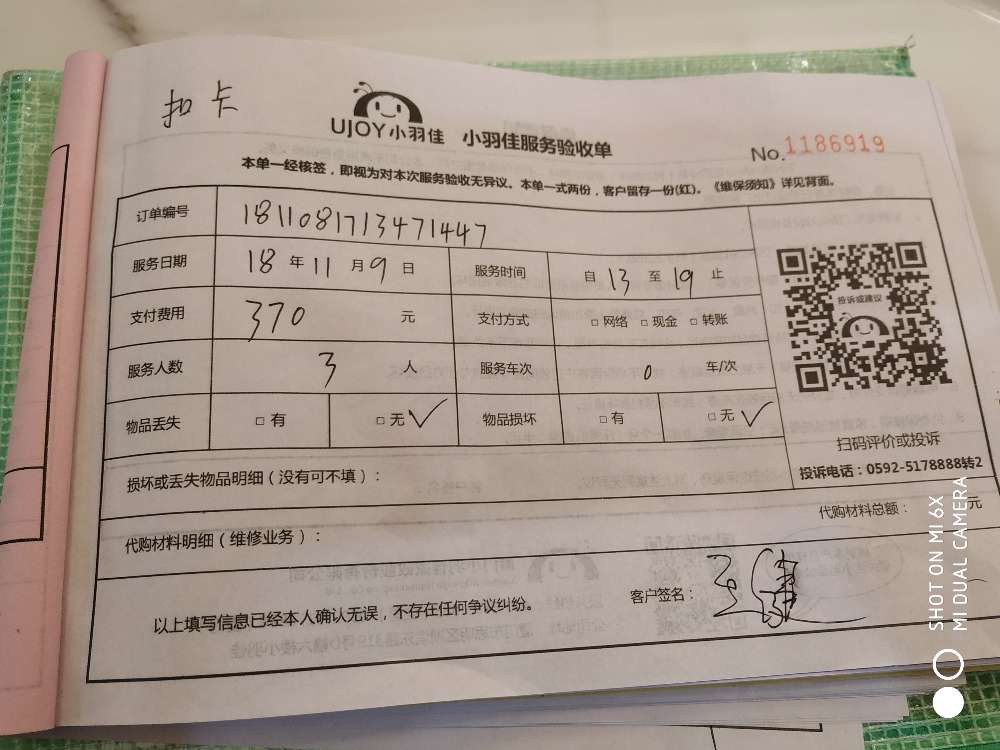 扣卡
UJOY小羽佳 小羽佳服务验收单
No.1186919
本单一经核签，即视为对本次服务验收无异议。本单一式两份，客户留存一份(红)。《维保须知》详见背面。
订单编号 1811081713471447
服务日期 18 年 11 月 9 日 服务时间 自 13 至 19 止
支付费用 370 元 支付方式 □ 网络 □ 现金 □ 转账
服务人数 3 人 服务车次 0 车/次
物品丢失 □ 有 □ 无 ✓ 物品损坏 □ 有 □ 无 ✓
投诉或建议
扫码评价或投诉
投诉电话：0592-5178888转2
损坏或丢失物品明细（没有可不填）：
代购材料明细（维修业务）： 代购材料总额： 元
以上填写信息已经本人确认无误，不存在任何争议纠纷。 客户签名：
SHOT ON MI 6X
MI DUAL CAMERA